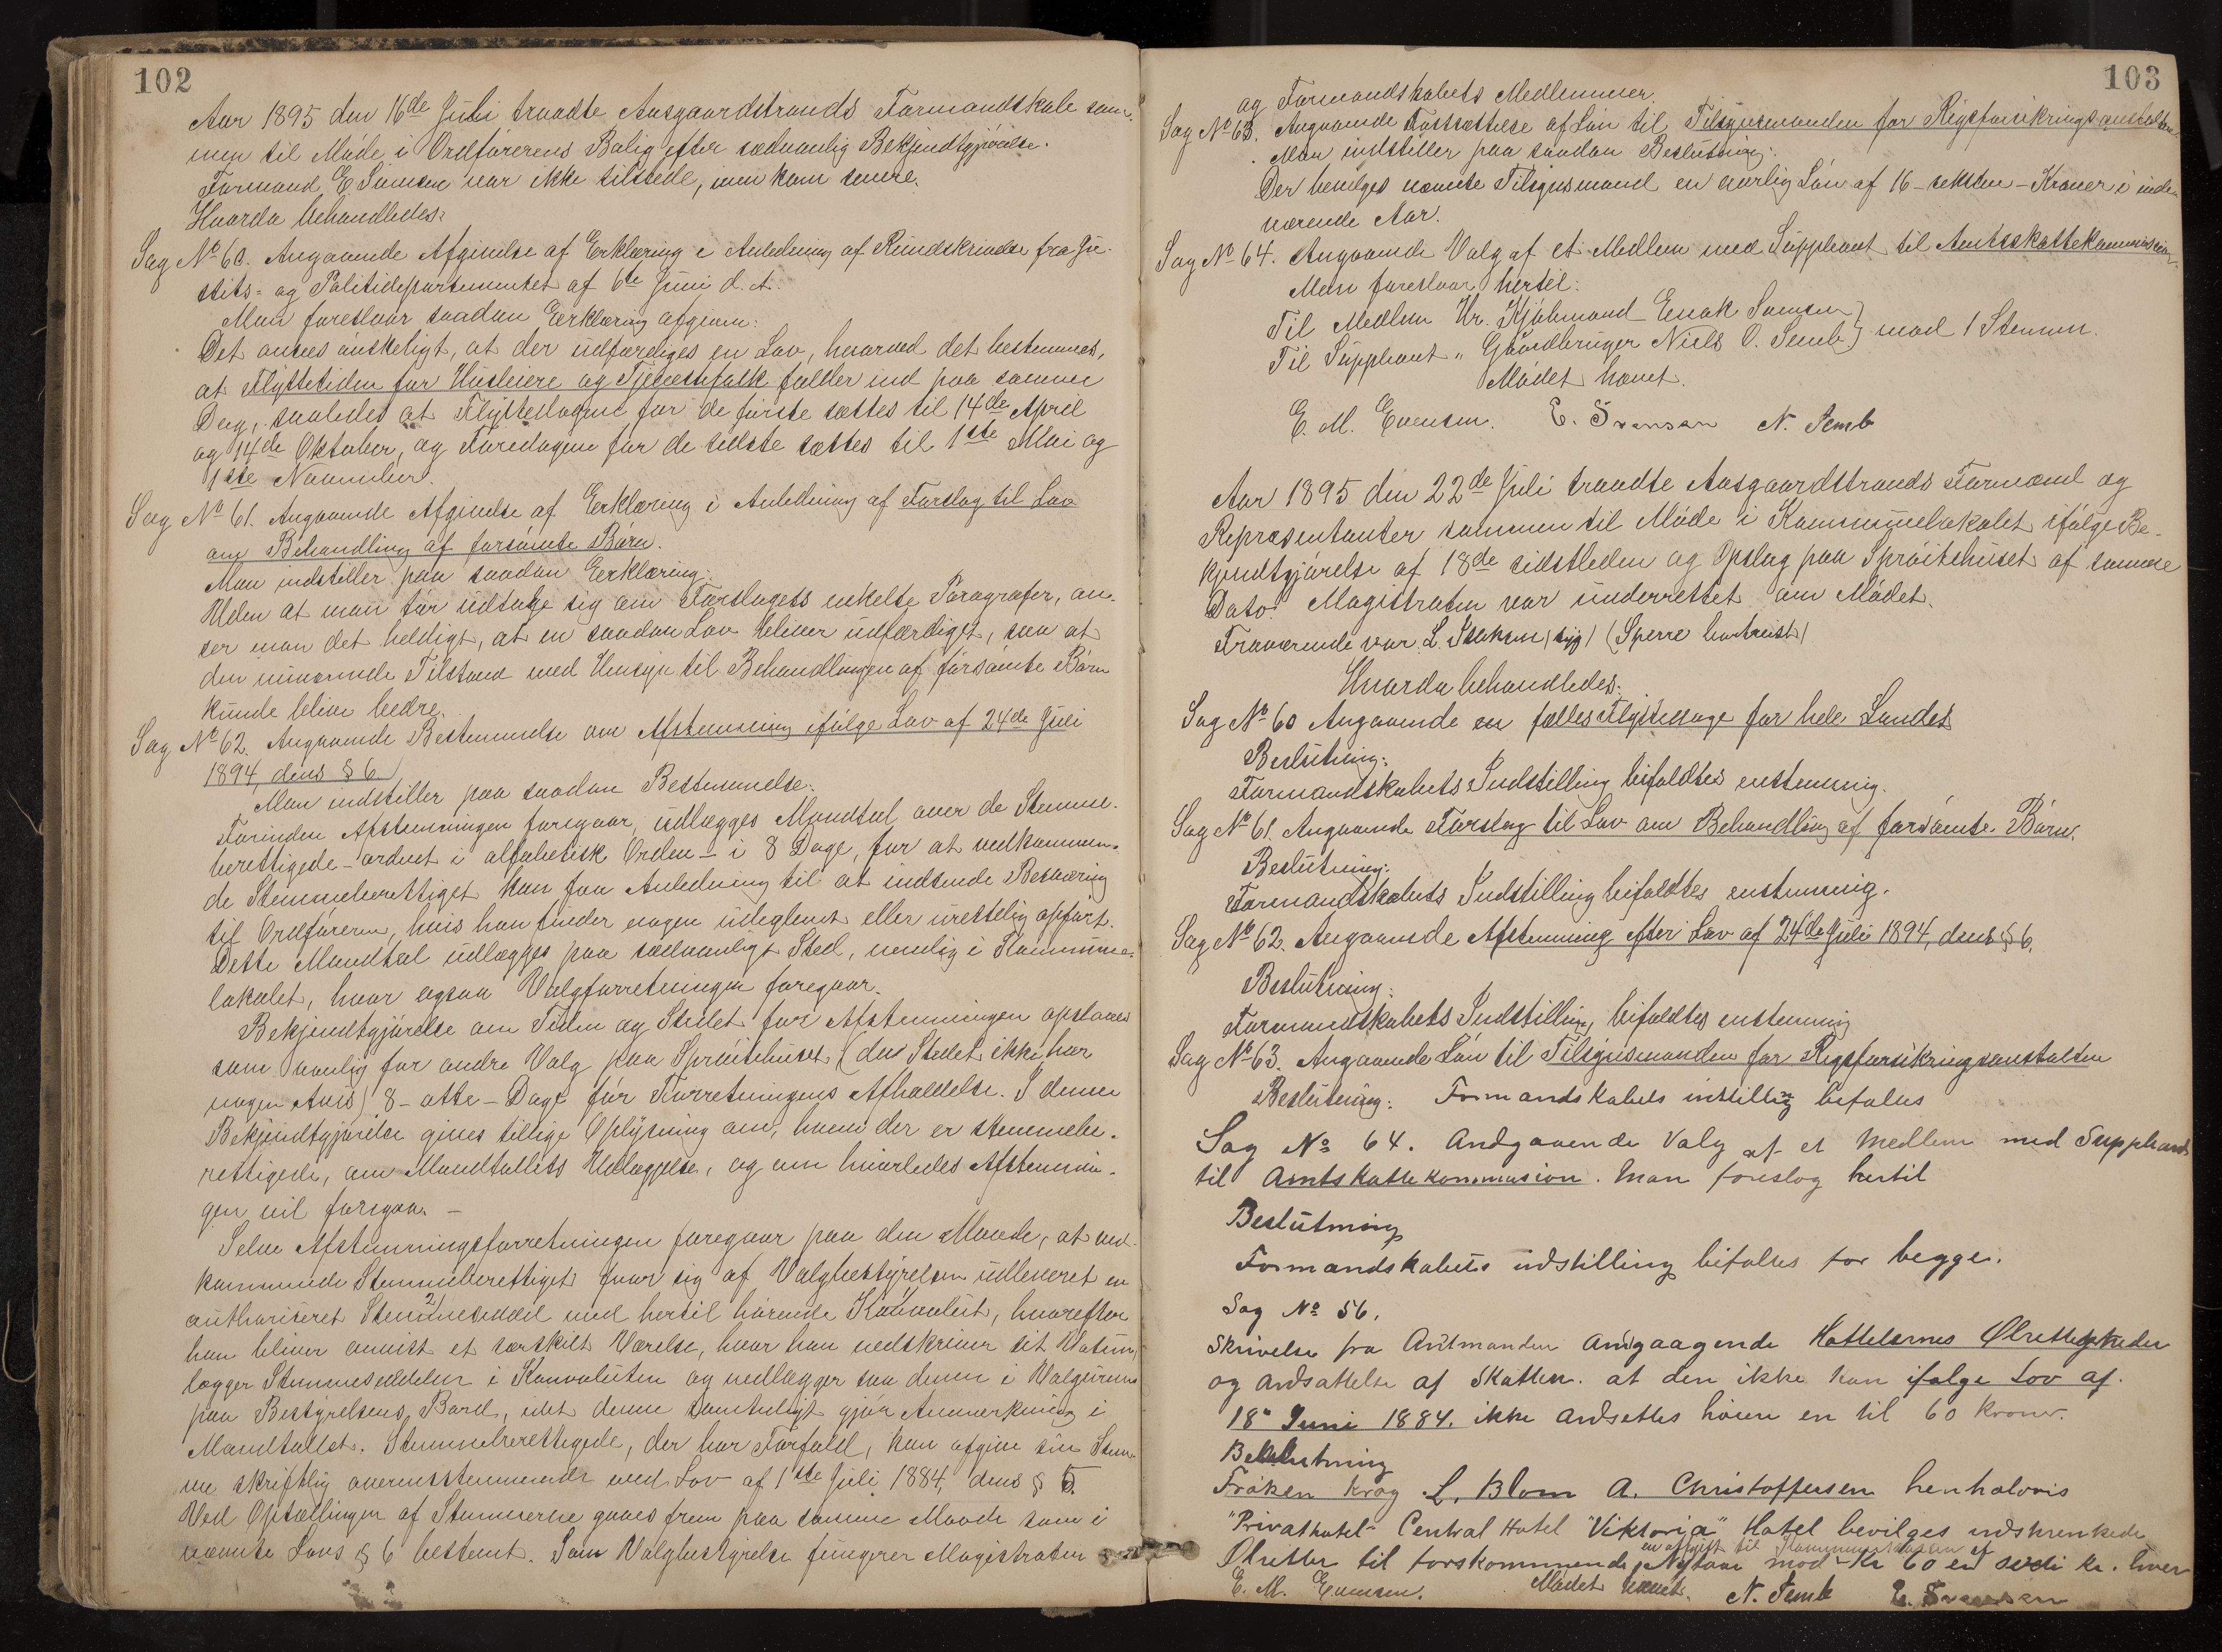 102
Aar 1895 den 16de Juli traadte Aasgaardstrands Formandskab sam-
men til Møde i Ordførerens Bolig efter sædvanlig Bekjendtgjørelse.
Formand E Svensen var ikke tilstede, men kom senere.
Hvorda behandledes:
Sag No 60. Angaaende Afgivelse af Erklæring i Anledning af Rundskrivelse fra Ju-
stits- og Politidepartementet af 6te Juni d. A.
Man foreslaar saadan Erklæring afgiven:
Det ansees ønskeligt, at der udfærdiges en Lov, hvorved det bestemmes,
at Flyttetiden for Husleiere og Tjenestefolk falder ind paa samme
Dag, saaledes at Flyttedagene for de første sættes til 14de April
og 14de Oktober, og Faredagene for de sidste sættes til 1ste Mai og
1ste November.
Sag No 61. Angaaende Afgivelse af Erklæring i Anledning af Forslag til Lov
om Behandling af forsømte Børn.
Man indstiller paa saadan Erklæring:
Uden at man tør udtale sig om Forslagets enkelte Paragrafer, an-
ser man det heldigt, at en saadan Lov bliver udfærdiget, saa at
den nuværende Tilstand med Hensyn til Behandlingen af forsømte Børn
kunde blive bedre.
Sag No 62. Angaaende Bestemmelse om Afstemning ifølge Lov af 24de Juli
1894, dens § 6
Man indstiller paa saadan Bestemmelse:
Forinden Afstemningen foregaar, udlægges Mandtal over de Stemme-
berettigede - ordnet i alfabetisk Orden - i 8 Dage, for at vedkommen-
de Stemmeberettiget kan faa Anledning til at indsende Besværing
til Ordføreren, hvis han finder nogen udeglemt eller urettelig opført.
Dette Mandtal udlægges paa sædvanligt Sted, nemlig i Kommune-
lokalet, hvor ogsaa Valgforretningen foregaar.
Bekjendtgjørelse om Tiden og Stedet for Afstemningen opslaaes
som vanlig for andre Valg paa Sprøitehuset (da Stedet ikke har
nogen Avis) 8 - otte - Dage før Forretningens Afholdelse. I denne
Bekjendtgjørelse gives tillige Oplysning om, hvem der er stemmebe-
rettigede, om Mandtallets Udlæggelse, og om hvorledes Afstemnin-
gen vil foregaa. -
Selve Afstemningsforretningen foregaar paa den Maade, at ved-
kommende Stemmeberettiget faar sig af Valgbestyrelsen udleveret en
authoriseret Stemmeseddel med hertil hørende Konvolut, hvorefter
han bliver anvist et særskilt Værelse, hvor han nedskriver sit Votum,
lægger Stemmeseddelen i Konvoluten og nedlægger saa denne i Valgurnen
paa Bestyrelsens Bord, idet denne samtidigt gjør Anmerkning i
Mandtallet. Stemmeberettigede, der har Forfald, kan afgive sin Stem-
me skriftlig overensstemmende med Lov af 1ste Juli 1884, dens § 5.
Ved Optællingen af Stemmerne gaaes frem paa samme Maade som i
nævnte Lovs § 6 bestemt. Som Valgbestyrelse fungerer Magistraten
103
og Formandskabets Medlemmer.
Sag No 63. Angaaende Fastsættelse af Løn til Tilsynsmanden for Rigsforsikringsanstalten
Man indstiller paa saadan Beslutning:
Der bevilges nævnte Tilsynsmand en aarlig Løn af 16 - seksten - Kroner i inde-
værende Aar.
Sag No 64. Angaaende Valg af et Medlem med Suppleant til Amtsskattekommission.
Man foreslaar hertil:
Til Medlem Hr. Kjøbmand Enok Samsen
Til Suppleant " Gaardbruger Niels O. Semb } mod 1 Stemme.
Mødet hævet.
E. M. Evensen. E. Svensen N. Semb
Aar 1895 den 22de Juli traadte Aasgaardstrands Formænd og
Repræsentanter sammen til Møde i Kommunelokalet ifølge Be-
kjendtgjørelse af 18de sidstleden og Opslag paa Sprøitehuset af samme
Dato. Magistraten var underrettet om Mødet.
Fraværende var L. Isaksen (syg) (Sperre bortreist)
Hvorda behandledes:
Sag No 60 Angaaende en fælles Flyttedage for hele Landet
Beslutning:
Formandskabets Indstilling bifaldtes enstemmig.
Sag No 61. Angaaende Forslag til Lov om Behandling af forsømte Børn.
Beslutning:
Formandskabets Indstilling bifaldtes enstemmig.
Sag No 62. Angaaende Afstemning efter Lov af 24de Juli 1894, dens § 6.
Beslutning:
Formandskabets Indstilling bifaldtes enstemmig
Sag No 63. Angaaende Løn til Tilsynsmanden for Rigsforsikringsanstalten
Beslutning: Formandskabets instilling bifaltes
Sag No 64. Andgaaende Valg af et Medlem med Suppleant
til Amtskattekommusion. Man foreslog hertil
Beslutning
Formandskabets indstilling bifaltes for begge.
Sag No 56.
Skrivelse fra Amtmanden andgaagende Hottelernes Ølrettigheder
og andsattelse af Skatten. at den ikke kan ifølge Lov af
18de Juni 1884. ikke andsettes høiere en til 60 kroner.
Beslutning
Frøken Krog L. Blom A. Christoffersen henholdvis
"Privathotel" Central Hotel "Viktoria" Hotel bevilges indskrenkede
en afgift til Kommunekassen af
Ølretter til førskommende Nytaar mod Kr 60 en kr. hver
E. M. Evensen. Mødet hævet. N. Semb E. Svensen